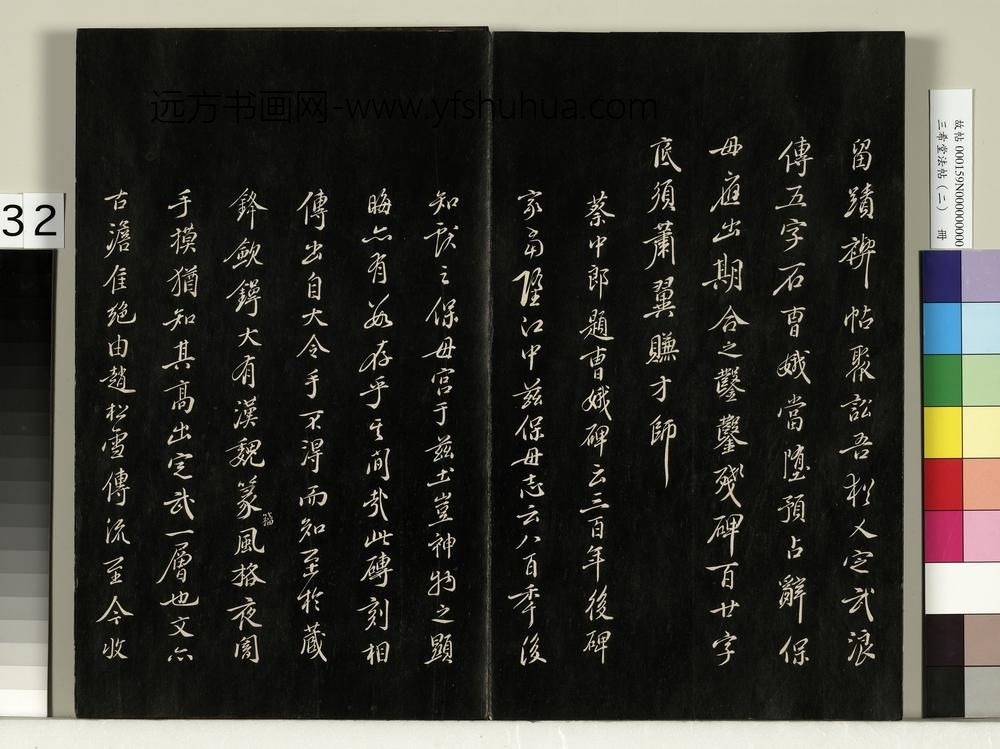 留蹟禊帖聚訟吾猶人定武浪
傳五字石曹娥當墮預占辭保
母應出期合之鑿鑿殘碑百廿字
底須蕭翼賺才師
蔡中郎題曹娥碑云三百年後碑
家當墮江中茲保母志云八百季後
知獻之保母宮于茲土豈神物之顯
晦亦有數存乎其間歟此磚刻相
傳出自大令手不得而知至於藏
鋒斂鍔大有漢魏篆風格夜闇
籀
手摸猶知其高出定武一層也文亦
古澹隹絕由趙松雪傳流至今收
远方书画网-www.yfshuhua.com
故帖 000159N000000000
三希堂法帖（二） 冊
32